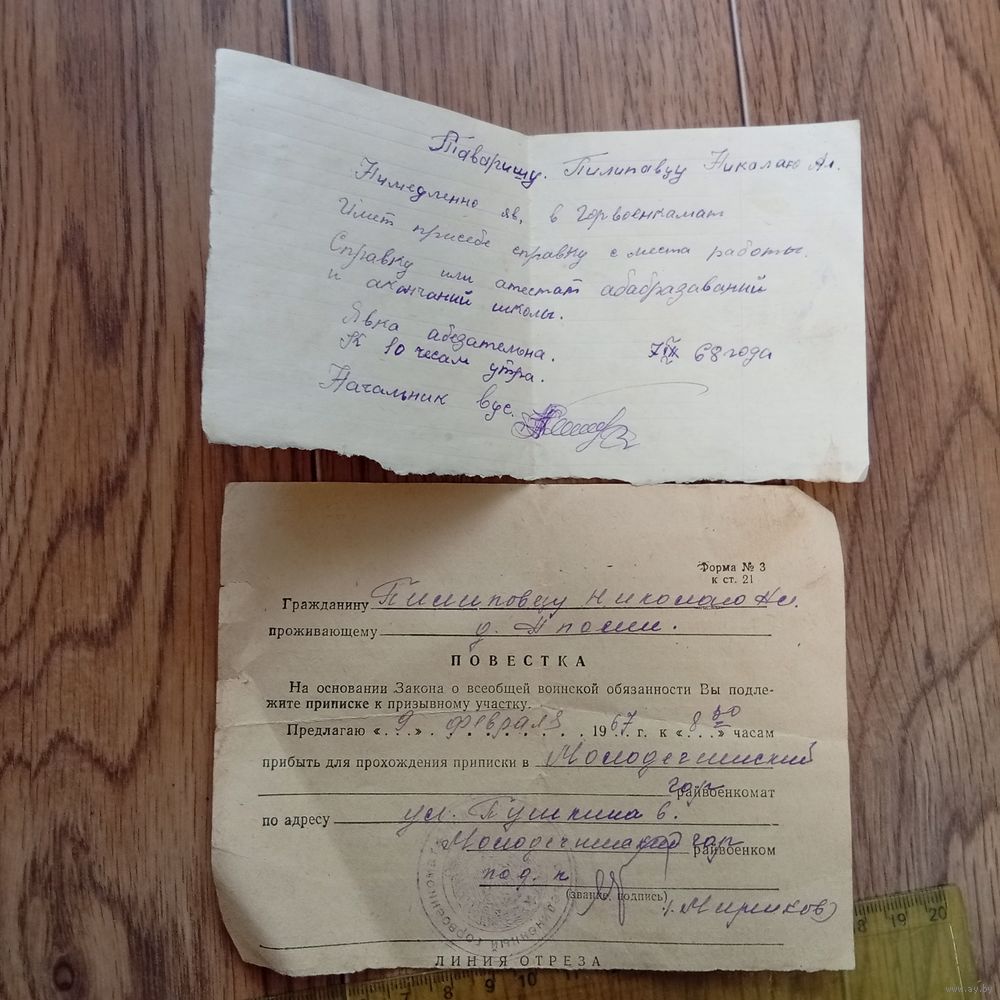 Таварищу. Пилипавцу Никалаю Ал.
Нимедленно яв, в Горвоенкамат
Имет присебе справку с места работы.
Справку или атестат абабразаваний
и акончаний школы.
Явка абезательна.
К 10 чесам утра.
68 года
Начальник вус.
Форма № 3
к ст. 21
Гражданину Пилиповцу Николаю Ал.
проживающему д.
ПОВЕСТКА
На основании Закона о всеобщей воинской обязанности Вы подле-
жите приписке к призывному участку.
Предлагаю « 9 » февраля 1967 г. к « 8 50 » часам
прибыть для прохождения приписки в Молодечненский
гор райвоенкомат
по адресу ул. Пушкина 6.
Молодечненский гор райвоенком
подп-к
(звание, подпись)
ЛИНИЯ ОТРЕЗА
7 8 9 10
18 19 20
www.ay.by